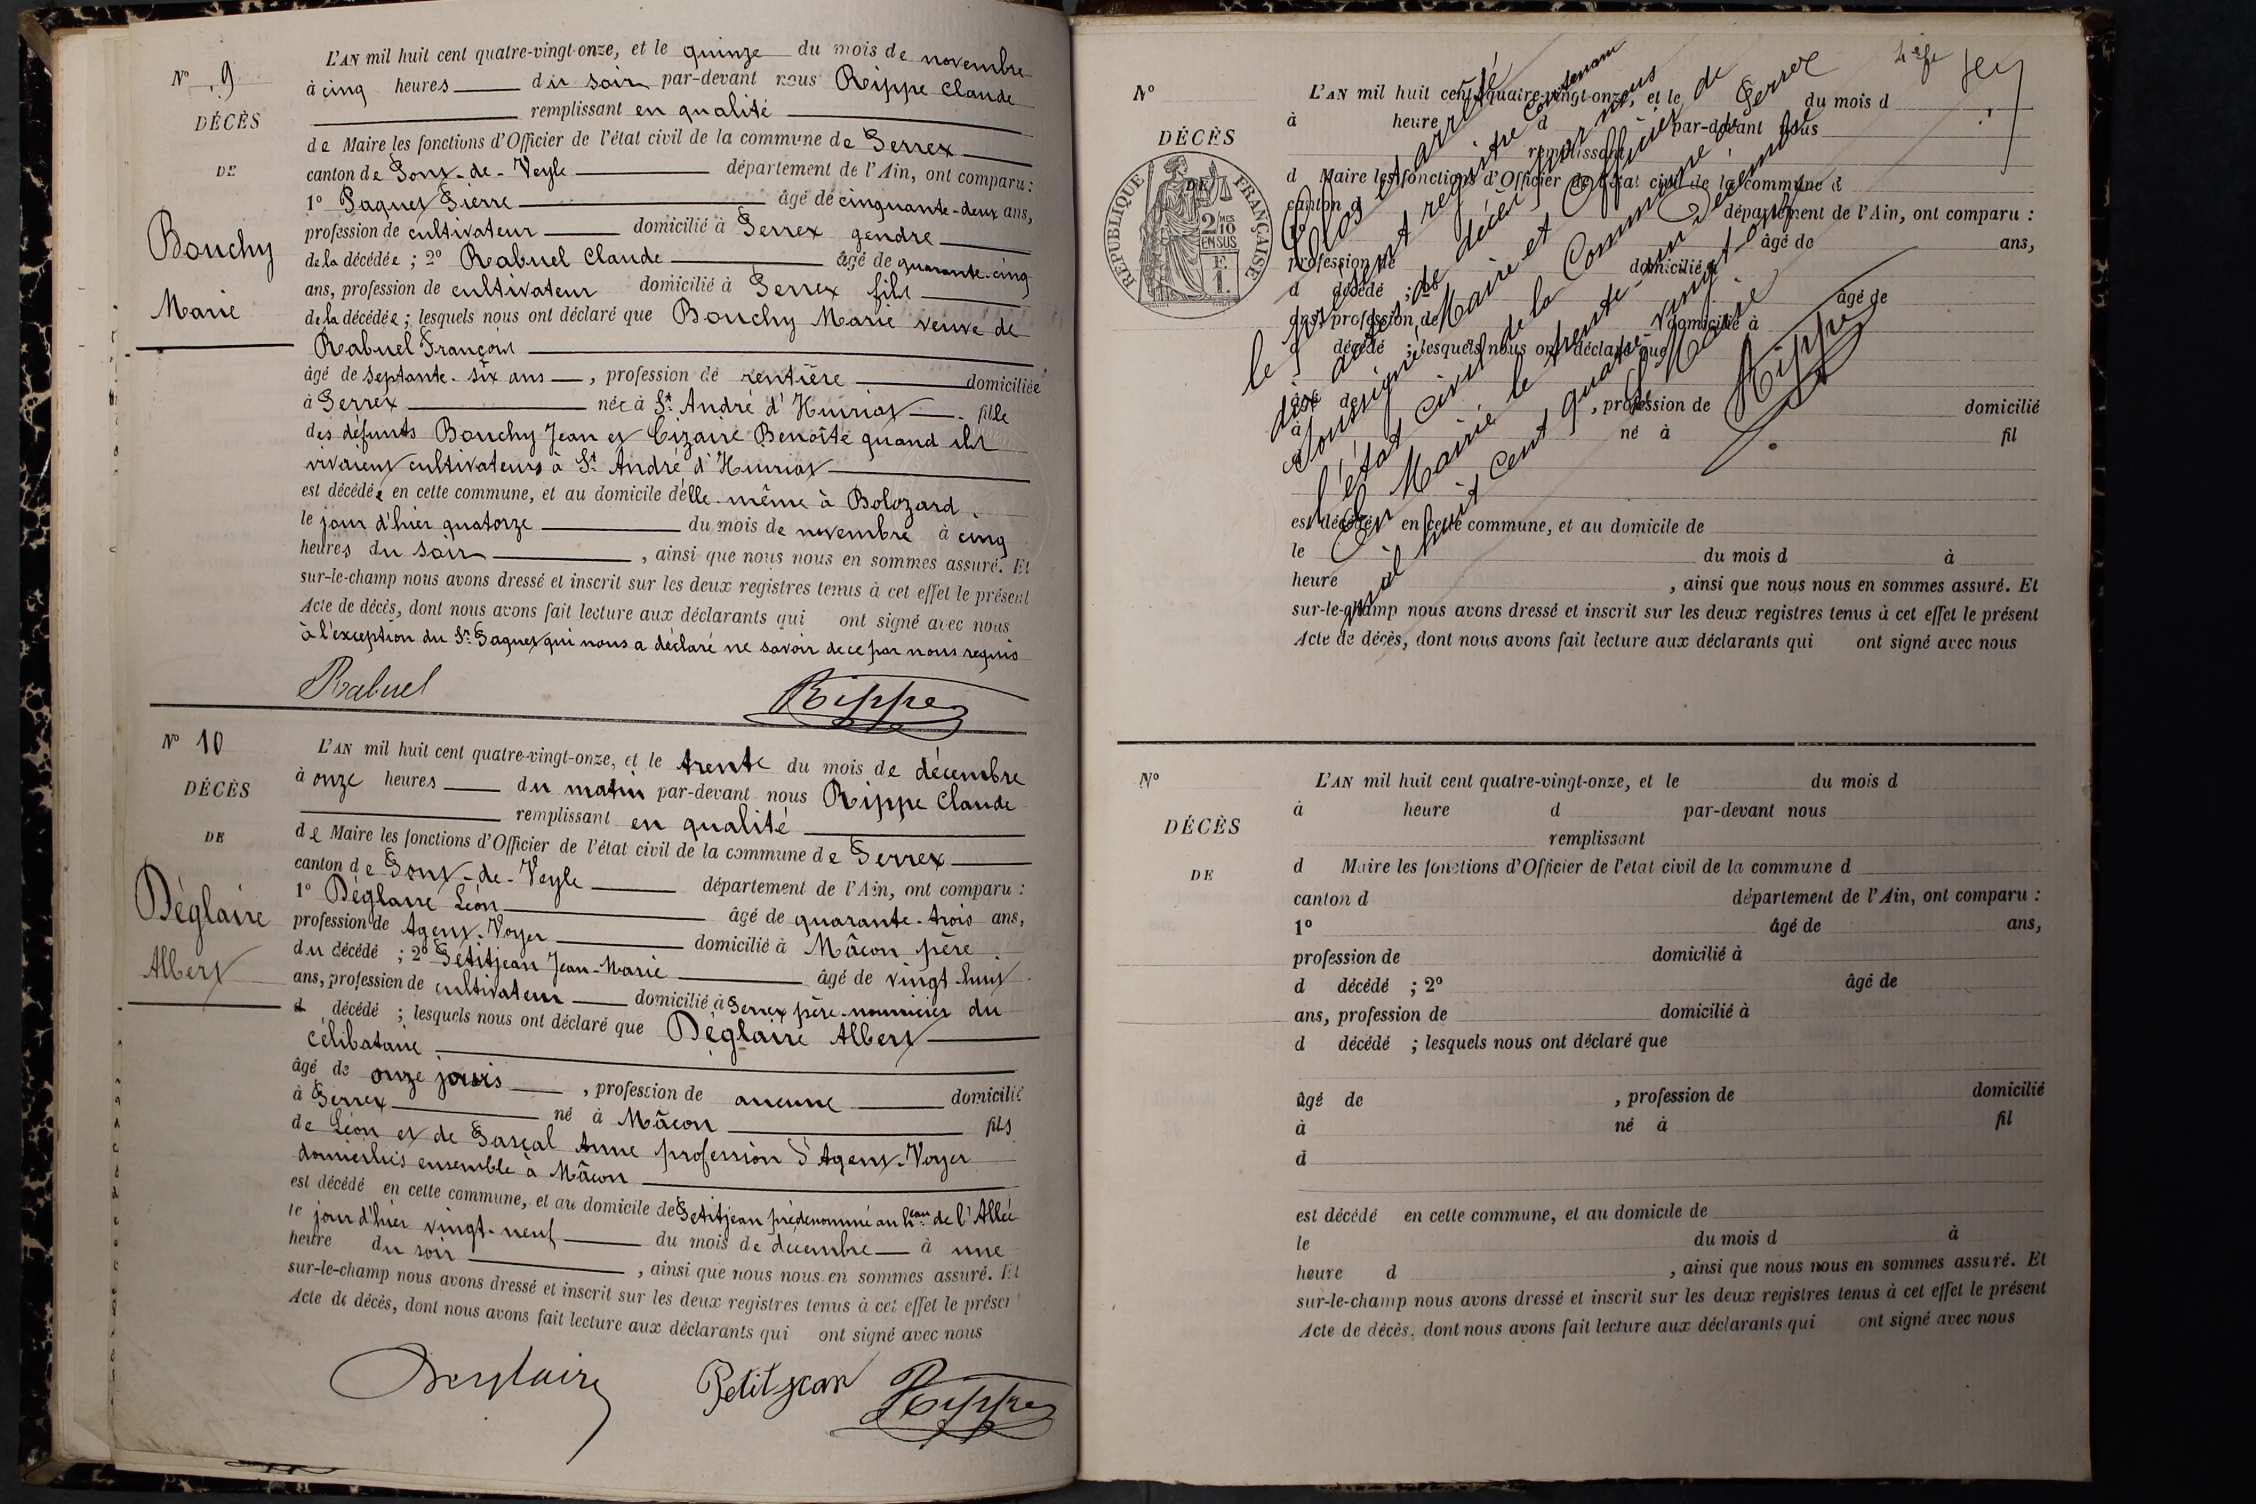 N° 9
DÉCÈS
DE
Bouchy
Marie
L'AN mil huit cent quatre-vingt-onze, et le quinze du mois de novembre
à cinq heures du soir par-devant nous Rippe Claude
remplissant en qualité
de Maire les fonctions d'Officier de l'état civil de la commune de Perrex
canton de Pont-de-Veyle département de l'Ain, ont comparu :
1° Paquet Pierre âgé de cinquante-deux ans,
profession de cultivateur domicilié à Perrex gendre
de la décédée ; 2° Rabuel Claude âgé de quarante-cinq
ans, profession de cultivateur domicilié à Perrex fils
de la décédée ; lesquels nous ont déclaré que Bouchy Marie veuve de
Rabuel François
âgé de septante-six ans, profession de rentière domiciliée
à Perrex née à St André d'Huiriat fille
des défunts Bouchy Jean et Cizaire Benoîte quand ils
vivaient cultivateurs à St André d'Huiriat
est décédée en cette commune, et au domicile d'elle-même à Bolozard
le jour d'hier quatorze du mois de novembre à cinq
heures du soir, ainsi que nous nous en sommes assuré. Et
sur-le-champ nous avons dressé et inscrit sur les deux registres tenus à cet effet le présent
Acte de décès, dont nous avons fait lecture aux déclarants qui ont signé avec nous
à l'exception du Sr Paquet qui nous a déclaré ne savoir de ce par nous requis
Rabuel Rippe
N° 10
DÉCÈS
DE
Déglaire
Albert
L'AN mil huit cent quatre-vingt-onze, et le trente du mois de décembre
à onze heures du matin par-devant nous Rippe Claude
remplissant en qualité
de Maire les fonctions d'Officier de l'état civil de la commune de Perrex
canton de Pont-de-Veyle département de l'Ain, ont comparu :
1° Déglaire Léon âgé de quarante-trois ans,
profession de Agent-Voyer domicilié à Mâcon père
du décédé ; 2° Petitjean Jean-Marie âgé de vingt-huit
ans, profession de cultivateur domicilié à Perrex père-nourricier du
d décédé ; lesquels nous ont déclaré que Déglaire Albert
célibataire
âgé de onze jours, profession de aucune domicilié
à Perrex né à Mâcon fils
de Léon et de Pascal Anne profession d'Agent-Voyer
domiciliés ensemble à Mâcon
est décédé en cette commune, et au domicile de Petitjean prédénommé au heau de l'Allée
le jour d'hier vingt-neuf du mois de décembre à une
heure du soir, ainsi que nous nous en sommes assuré. Et
sur-le-champ nous avons dressé et inscrit sur les deux registres tenus à cet effet le présent
Acte de décès, dont nous avons fait lecture aux déclarants qui ont signé avec nous
Deglaire Petitjean Rippe
N°
DÉCÈS
DE
RÉPUBLIQUE FRANÇAISE
2 MES
10
EN SUS
F.
1.
L'AN mil huit cent quatre-vingt-onze, et le du mois d
à heure d par-devant nous
remplissant
d Maire les fonctions d'Officier de l'état civil de la commune d
canton d département de l'Ain, ont comparu :
1° âgé de ans,
profession de domicilié à
d décédé ; 2° âgé de
ans, profession de domicilié à
d décédé ; lesquels nous ont déclaré que
âgé de , profession de domicilié
à né à fil
d
est décédé en cette commune, et au domicile de
le du mois d à
heure , ainsi que nous nous en sommes assuré. Et
sur-le-champ nous avons dressé et inscrit sur les deux registres tenus à cet effet le présent
Acte de décès, dont nous avons fait lecture aux déclarants qui ont signé avec nous
Clos et arrêté
le présent registre contenant
dix actes de décès par nous
soussigné Maire et Officier de
l'état civil de la Commune de Perrex
En Mairie le trente-un Décembre
mil huit cent quatre-vingt-onze
Le Maire
Rippe
N°
DÉCÈS
DE
L'AN mil huit cent quatre-vingt-onze, et le du mois d
à heure d par-devant nous
remplissant
d Maire les fonctions d'Officier de l'état civil de la commune d
canton d département de l'Ain, ont comparu :
1° âgé de ans,
profession de domicilié à
d décédé ; 2° âgé de
ans, profession de domicilié à
d décédé ; lesquels nous ont déclaré que
âgé de , profession de domicilié
à né à fil
d
est décédé en cette commune, et au domicile de
le du mois d à
heure d , ainsi que nous nous en sommes assuré. Et
sur-le-champ nous avons dressé et inscrit sur les deux registres tenus à cet effet le présent
Acte de décès, dont nous avons fait lecture aux déclarants qui ont signé avec nous